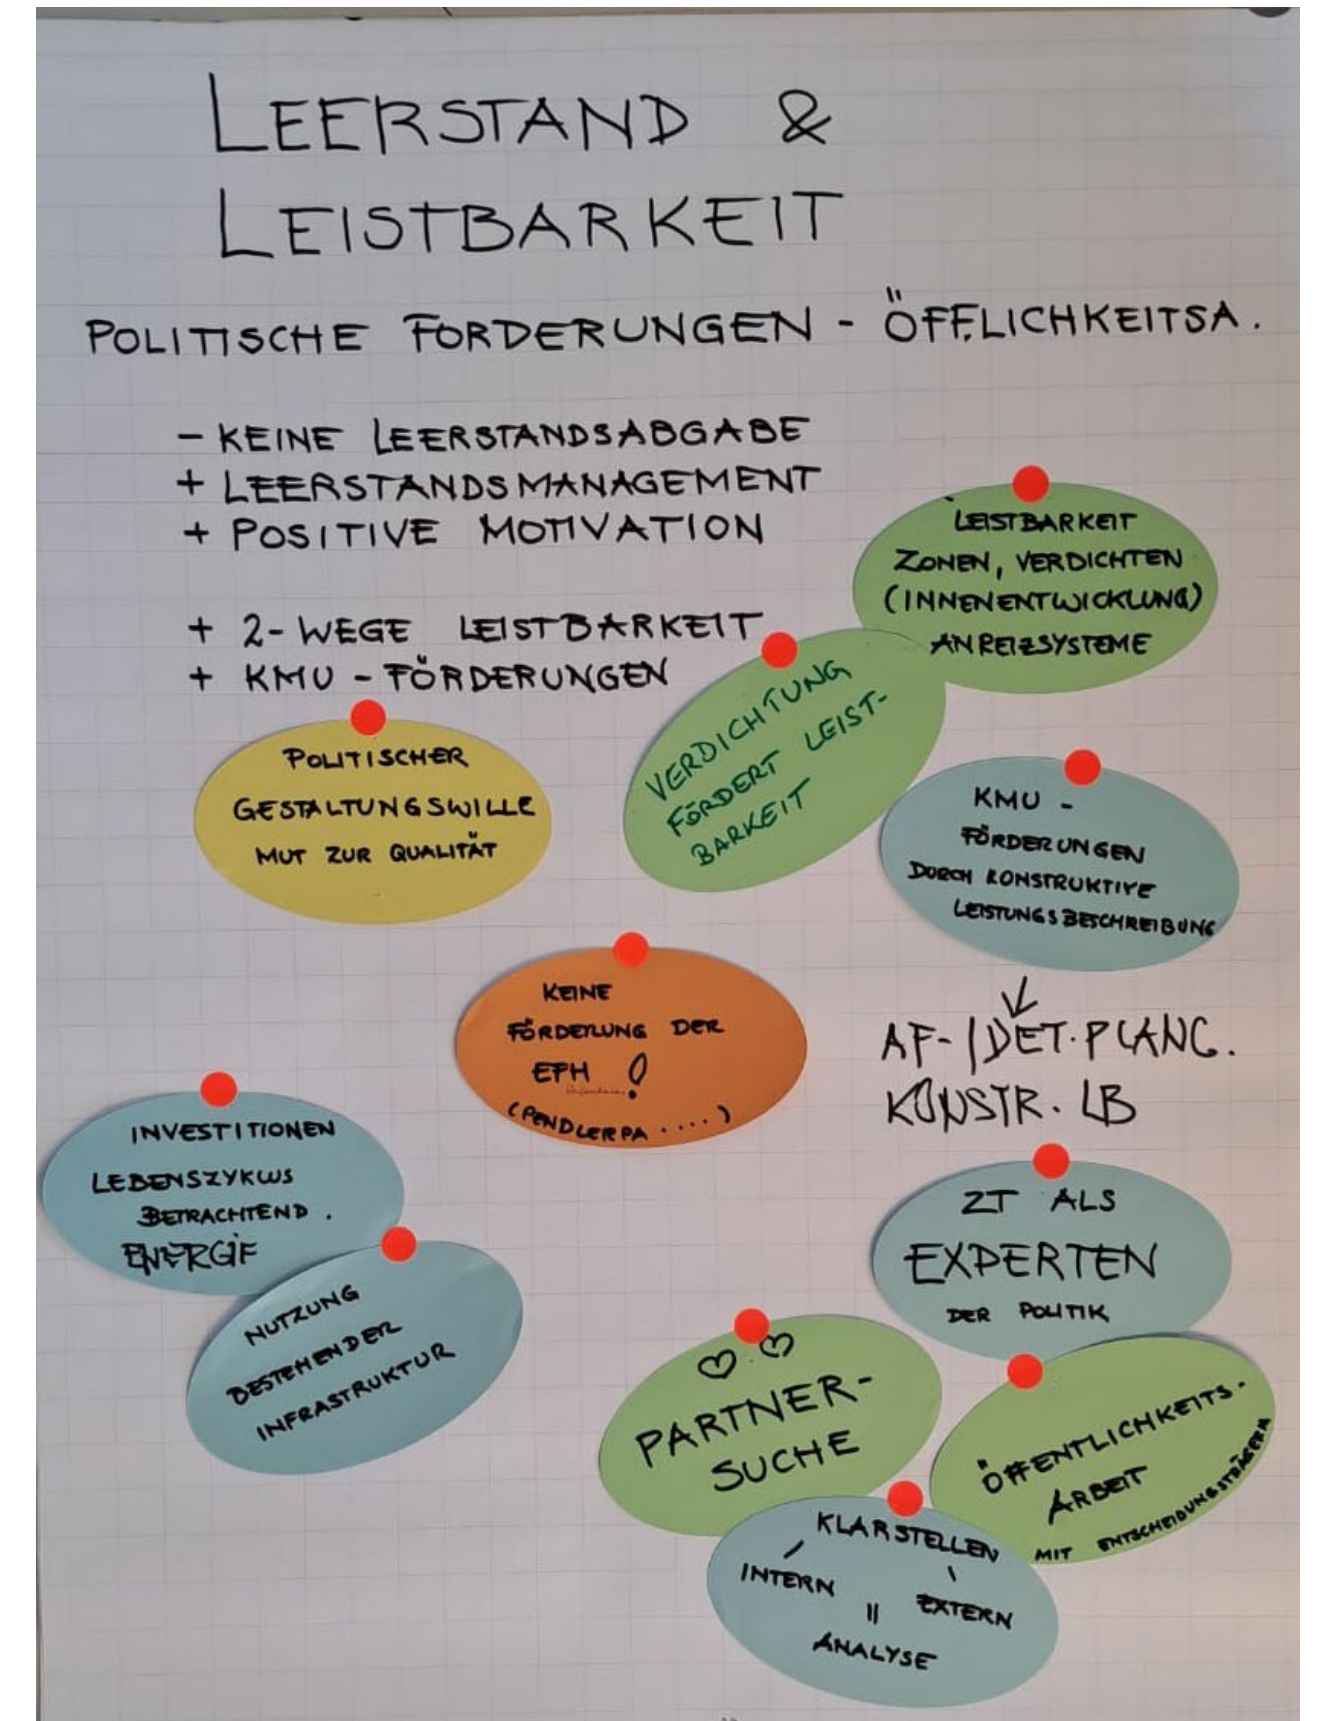 LEERSTAND &
LEISTBARKEIT
POLITISCHE FORDERUNGEN - ÖFF.LICHKEITSA.
- KEINE LEERSTANDSABGABE
+ LEERSTANDSMANAGEMENT
+ POSITIVE MOTIVATION
+ 2-WEGE LEISTBARKEIT
+ KMU - FÖRDERUNGEN
LEISTBARKEIT
ZONEN, VERDICHTEN
(INNENENTWICKLUNG)
ANREIZSYSTEME
VERDICHTUNG
FÖRDERT LEIST-
BARKEIT
POLITISCHER
GESTALTUNGSWILLE
MUT ZUR QUALITÄT
KMU -
FÖRDERUNGEN
DURCH KONSTRUKTIVE
LEISTUNGSBESCHREIBUNG
↓
AF-/DET.PLANG.
KONSTR. LB
KEINE
FÖRDERUNG DER
EFH !
(PENDLERPA ....)
INVESTITIONEN
LEBENSZYKLUS
BETRACHTEND.
ENERGIE
NUTZUNG
BESTEHENDER
INFRASTRUKTUR
ZT ALS
EXPERTEN
DER POLITIK
♡ ♡
PARTNER-
SUCHE
ÖFFENTLICHKEITS-
ARBEIT
MIT ENTSCHEIDUNGSTRÄGERN
KLARSTELLEN
INTERN
EXTERN
=
ANALYSE